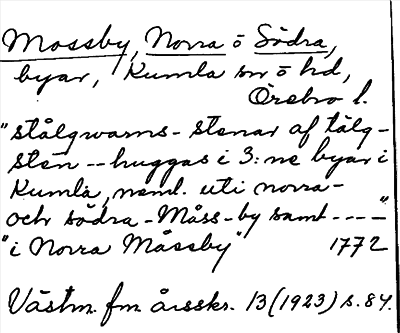 Mossby, Norra o Södra,
byar, Kumla sn o hd,
Örebro l.
"stålgwarns-stenar af tälg-
sten -- huggas i 3:ne byar i
Kumla, neml. uti norra-
och södra-Måss-by samt ----"
"i Norra Måssby" 1772
Västm. fm årsskr. 13 (1923) s. 84.